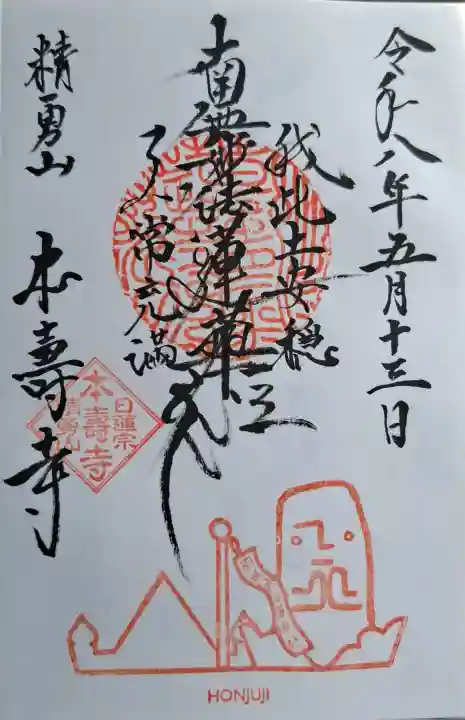 令和八年五月十三日
我此土安穏
南無妙法蓮華経
天人常充満
精勇山 本壽寺
日蓮宗
本壽寺
精勇山
HONJUJI